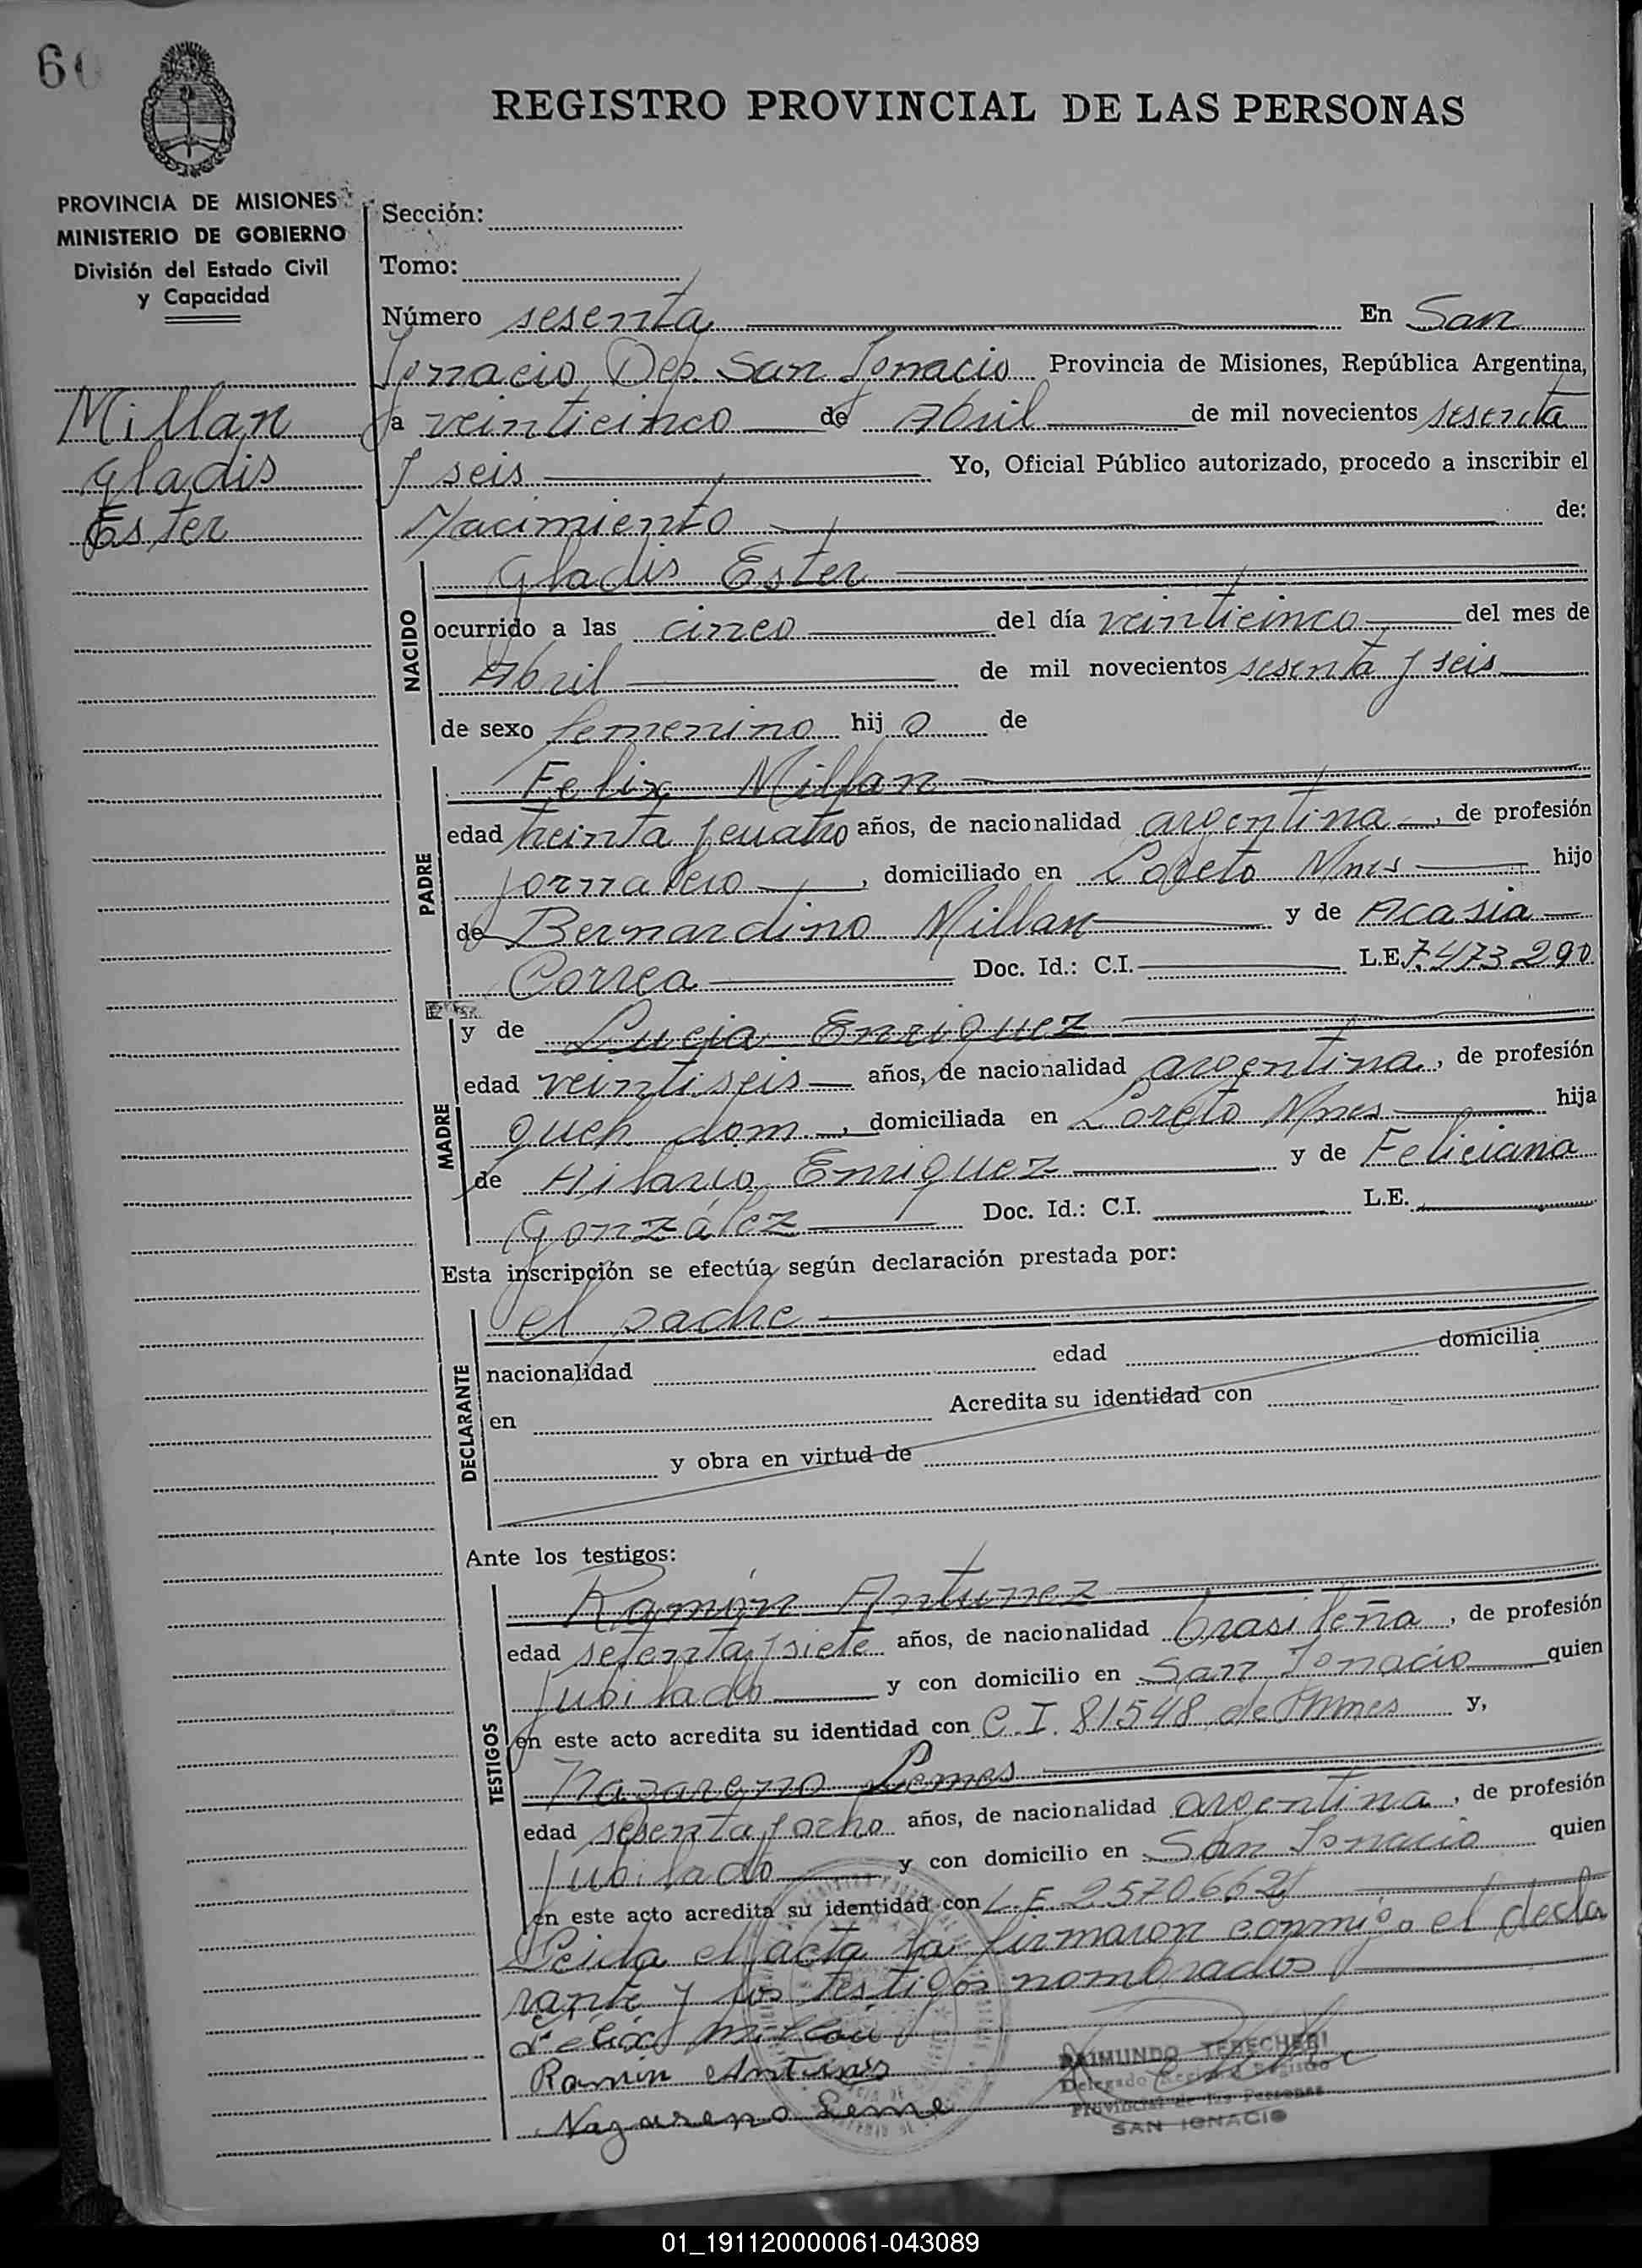 60
REGISTRO PROVINCIAL DE LAS PERSONAS
PROVINCIA DE MISIONES
MINISTERIO DE GOBIERNO
División del Estado Civil
y Capacidad
Millan
Gladis
Ester
Sección:
Tomo:
Número sesenta En San
Ignacio Dep. San Ignacio Provincia de Misiones, República Argentina,
a veinticinco de Abril de mil novecientos sesenta
y seis Yo, Oficial Público autorizado, procedo a inscribir el
Nacimiento de:
NACIDO
Gladis Ester
ocurrido a las cinco del día veinticinco del mes de
Abril de mil novecientos sesenta y seis
de sexo femenino hij o de
PADRE
Felix Millan
edad treinta y cuatro años, de nacionalidad argentina, de profesión
jornalero, domiciliado en Loreto Mnes hijo
de Bernardino Millan y de Acasia
Correa Doc. Id.: C.I. L.E. 7.473.290
MADRE
y de Lucia Enriquez
edad veintiseis años, de nacionalidad argentina, de profesión
queh dom., domiciliada en Loreto Mnes hija
de Hilario Enriquez y de Feliciana
González Doc. Id.: C.I. L.E.
Esta inscripción se efectúa según declaración prestada por:
DECLARANTE
el padre
nacionalidad edad domicilia
en Acredita su identidad con
y obra en virtud de
Ante los testigos:
TESTIGOS
Ramón Antunez
edad setenta y siete años, de nacionalidad brasileña, de profesión
jubilado y con domicilio en San Ignacio quien
en este acto acredita su identidad con C.I. 81548 de Mnes y,
Nazareno Lemes
edad sesenta y ocho años, de nacionalidad argentina, de profesión
jubilado y con domicilio en San Ignacio quien
en este acto acredita su identidad con L.E. 2570.662
Leida el acta la firmaron conmigo el decla
rante y los testigos nombrados
Felix Millan
Ramón Antunes
Nazareno Leme
RAIMUNDO TEBECHERI
Delegado Registro
Provincial de las Personas
SAN IGNACIO
01_191120000061-043089